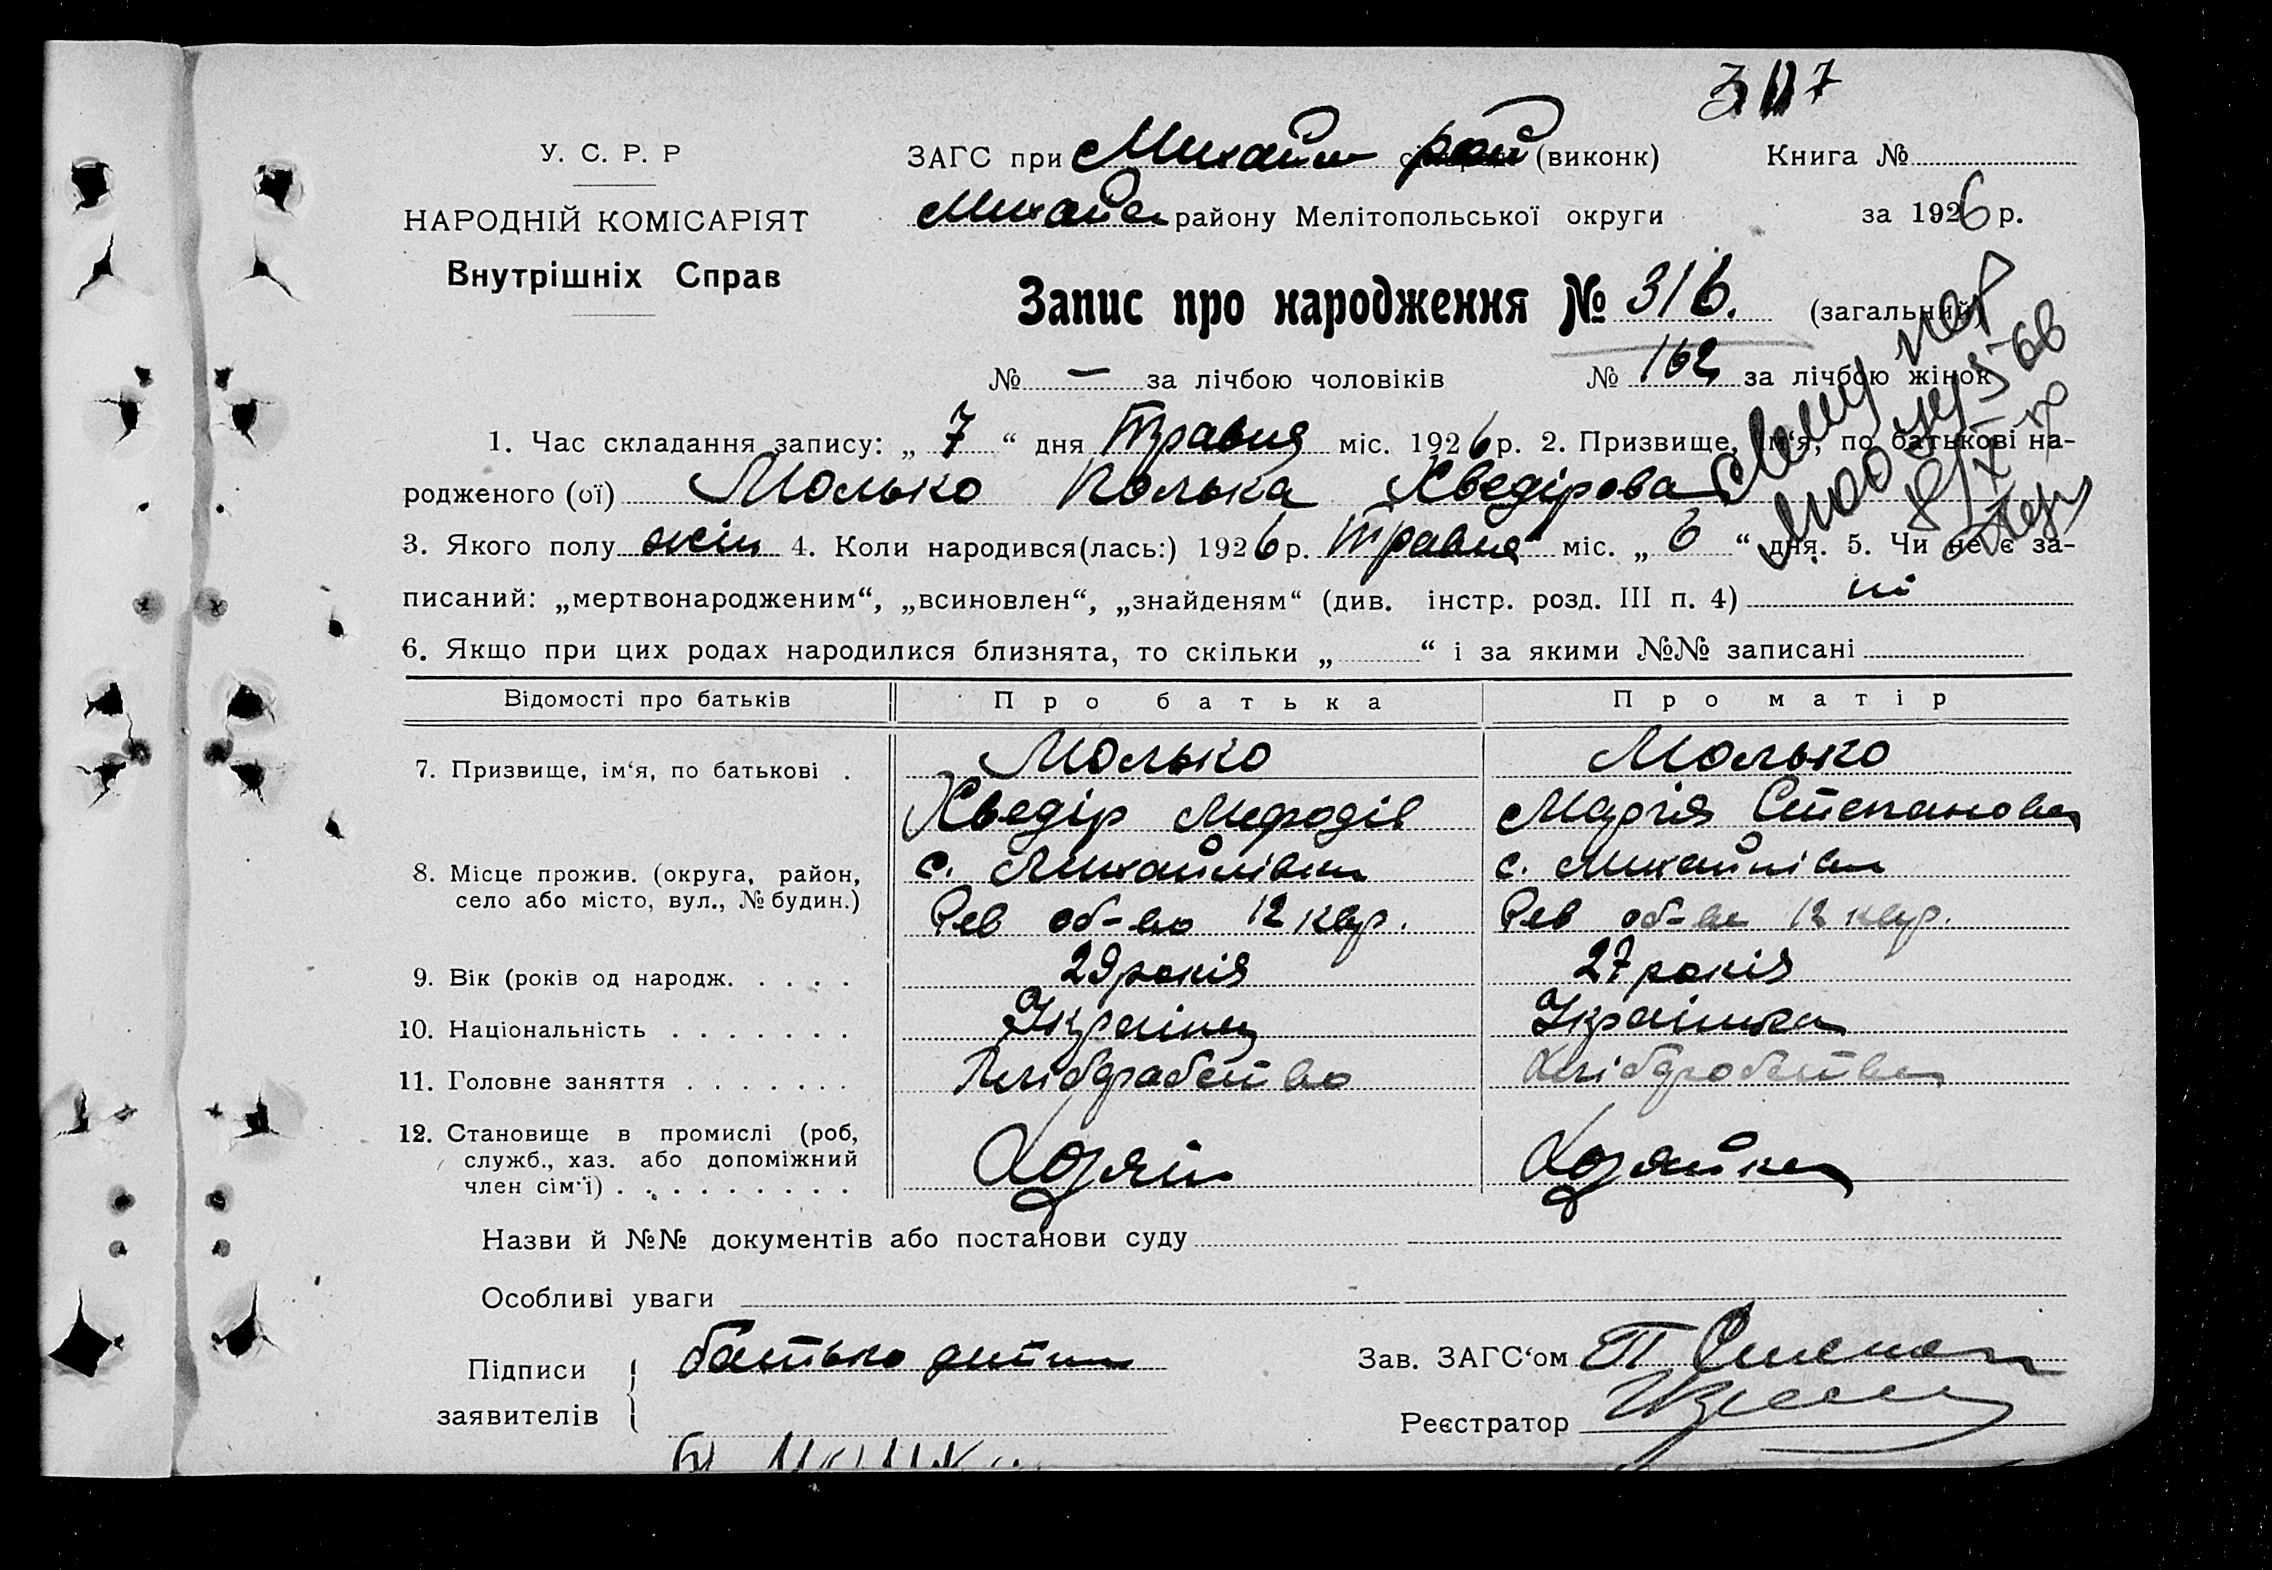 У. С. Р. Р
НАРОДНІЙ КОМІСАРІЯТ
Внутрішніх Справ
ЗАГС при Михайл рай (виконк) Книга №
Михайл району Мелітопольської округи за 1926 р.
Запис про народження № 316. (загальний)
№ — за лічбою чоловіків № 162 за лічбою жінок
1. Час складання запису: „ 7 “ дня Травня міс. 1926 р. 2. Призвище, ім‘я, по батькові на-
родженого (ої) Молько Полька Хведірова
3. Якого полу жін 4. Коли народився(лась:) 1926 р. Травня міс. „ 6 “ дня. 5. Чи не є за-
писаний: „мертвонародженим“, „всиновлен“, „знайденям“ (див. інстр. розд. III п. 4) ні
6. Якщо при цих родах народилися близнята, то скільки „ “ і за якими №№ записані
Відомості про батьків Про батька Про матір
7. Призвище, ім‘я, по батькові . Молько Молько
Хведір Мефодів Марія Степанова
8. Місце прожив. (округа, район, с. Михайлівка с. Михайлівка
село або місто, вул., № будин.) Рев об-во 12 квр. Рев об-во 12 квр.
9. Вік (років од народж. . . . . 29 років 27 років
10. Національність . . . . . . . Українец Українка
11. Головне заняття . . . . . . . Хліборобство Хліборобство
12. Становище в промислі (роб,
служб., хаз. або допоміжний Хозяїн Хозяйка
член сім‘ї) . . . . . . . . .
Назви й №№ документів або постанови суду
Особливі уваги
Підписи батько дитини Зав. ЗАГС‘ом
заявителів Реєстратор